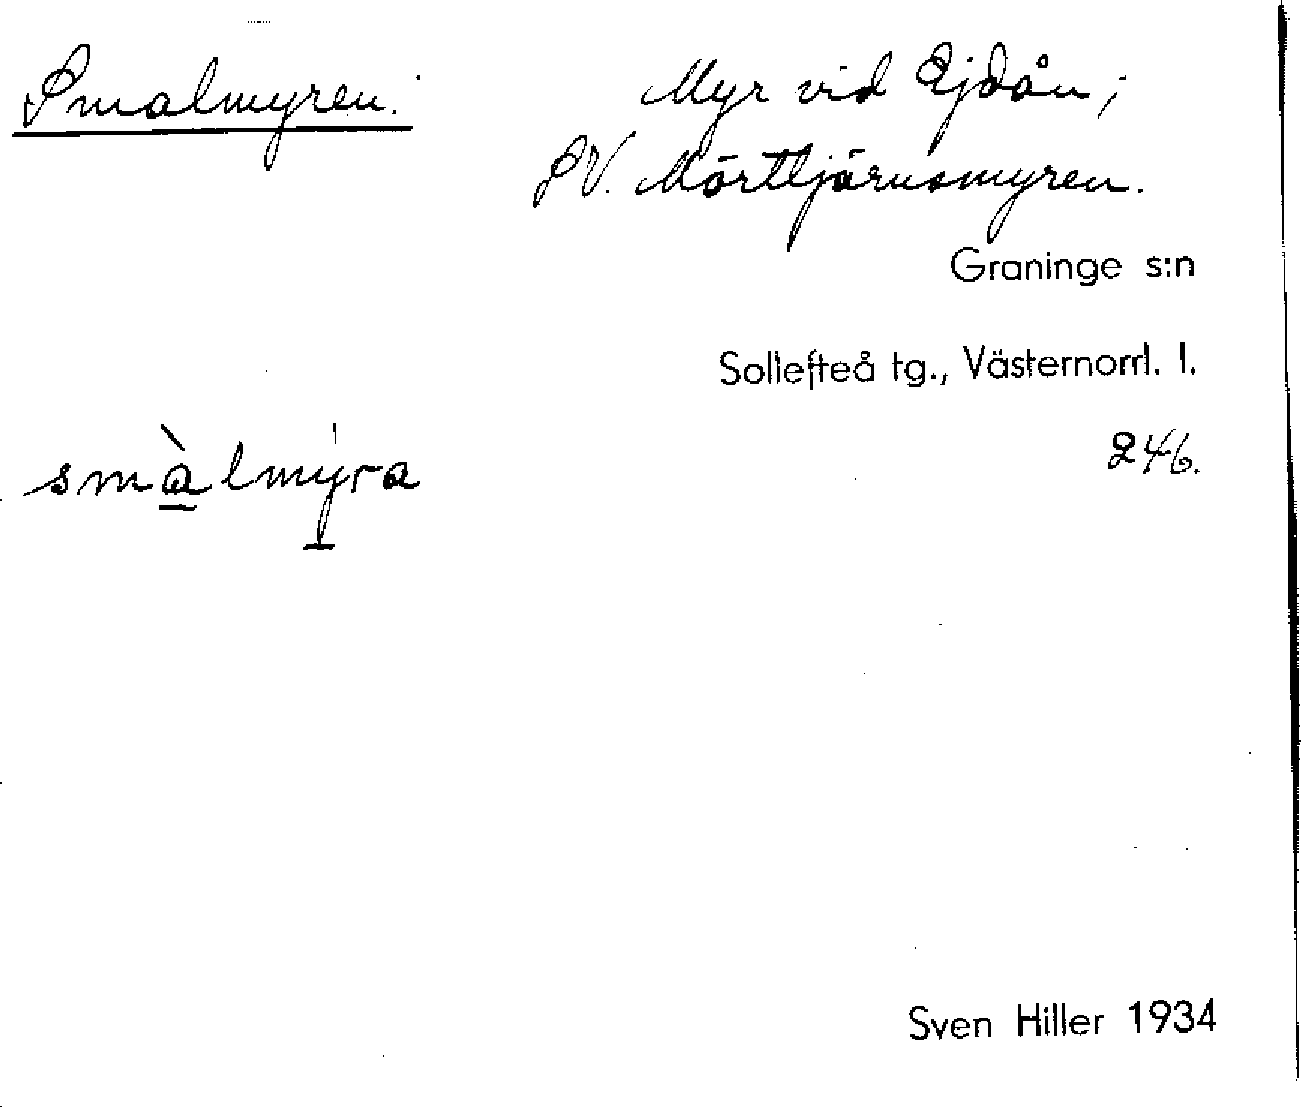 Smalmyren.
Myr vid Ejdån;
SV. Mörttjärnsmyren.
Graninge s:n
Sollefteå tg., Västernorrl. l.
smàlmýra
246.
Sven Hiller 1934